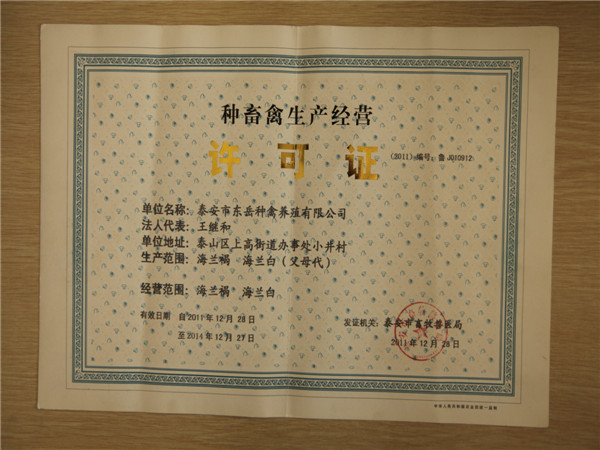 种畜禽生产经营
许可证
(2011)编号:鲁J010912
单位名称:泰安市东岳种禽养殖有限公司
法人代表:王继和
单位地址:泰山区上高街道办事处小井村
生产范围:海兰褐 海兰白(父母代)
经营范围:海兰褐 海兰白
有效日期 自2011年12月28日
至2014年12月27日
发证机关:泰安市畜牧兽医局
2011年12月28日
中华人民共和国农业部统一监制